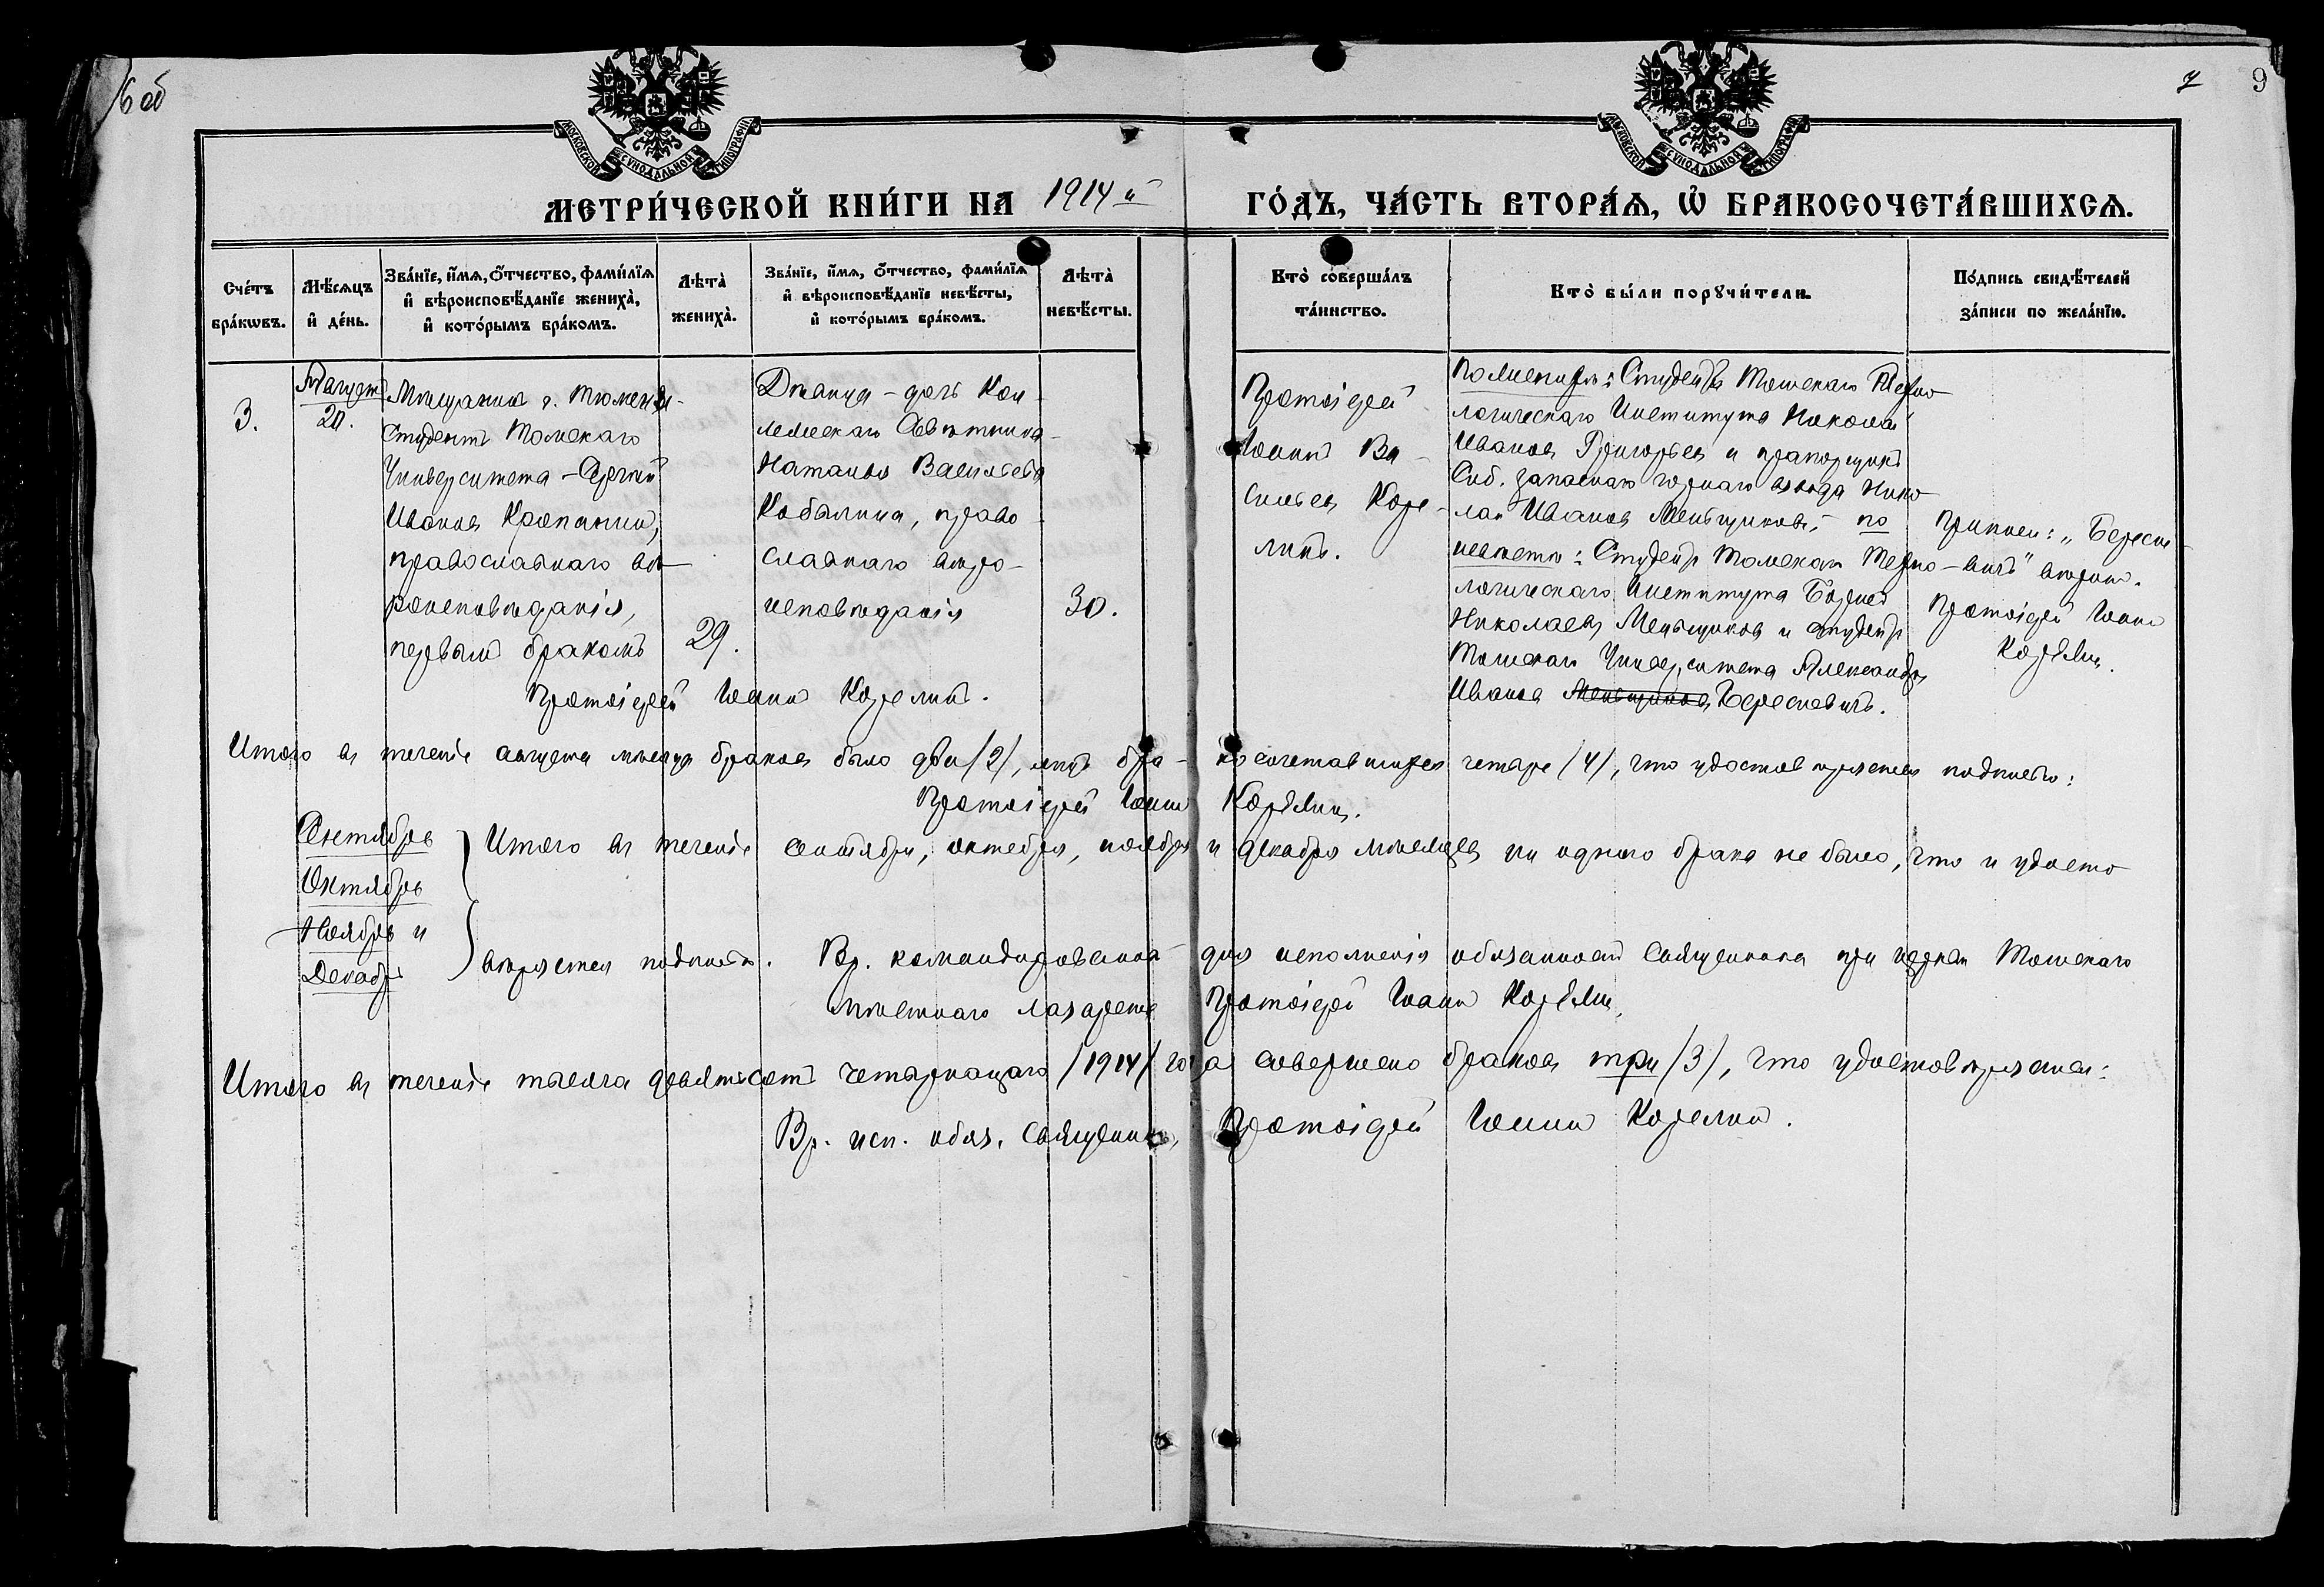 6 об
7 9
МОСКОВСКОЙ СѴНОДАЛЬНОЙ ТИПОГРАФІИ
МОСКОВСКОЙ СѴНОДАЛЬНОЙ ТИПОГРАФІИ
МЕТРИ́ЧЕСКОЙ КНИ́ГИ НА 1914 й ГО́ДЪ, ЧА́СТЬ ВТОРА́Ѧ, Ѽ БРАКОСОЧЕТА́ВШИХСѦ.
Сче́тъ
бра́кѡвъ.
Мѣ́сѧцъ
и҆ де́нь.
Зва́нїе, и҆́мѧ, ѻ҆́тчество, фами́лїѧ
и҆ вѣроисповѣ́данїе жениха̀,
и҆ кото́рымъ бра́комъ.
Лѣта̀
жениха̀.
Зва́нїе, и҆́мѧ, ѻ҆́тчество, фами́лїѧ
и҆ вѣроисповѣ́данїе невѣ́сты,
и҆ кото́рымъ бра́комъ.
Лѣта̀
невѣ́сты.
Кто̀ соверша́лъ
та́инство.
Кто̀ бы́ли порꙋчи́тели.
По́дпись свидѣ́телей
за́писи по жела́нїю.
3.
Августъ
20.
Мѣщанинъ г. Тюмени -
Студентъ Томскаго
Университета - Сергей
Иванов
православнаго вѣ-
роисповѣданія,
первымъ бракомъ
29.
Протоіерей Іоаннъ Корелинъ.
Дѣвица - дочь Кол-
лежскаго Совѣтника -
Наталья Васильева
Кобылина, право-
славнаго вѣро-
исповѣданія
30.
Протоіерей
Іоаннъ Ва-
сильев Коре-
линъ.
По женихѣ: Студентъ Томскаго Техно-
логическаго Института Николай
Иванов Григорьев и прапорщикъ
Сиб. запаснаго горнаго взвода Нико-
лай Иванов Меньщиковъ; - по
невѣстѣ: Студентъ Томскаго Техно-
логическаго Института
Николаев Меньщиков и студентъ
Томскаго Университета Александръ
Иванов Меньщиков Бересневичъ.
"Бересне-
вичъ" вѣрно.
Протоіерей Іоаннъ
Корелин.
Итого въ теченіе августа мѣсяца браков было два /2/, лицъ бра- косочетавшихся четыре /4/, что удостовѣряется подписью:
Протоіерей Іоаннъ Корелин.
Сентябрь
Октябрь
Ноябрь и
Декабрь
Итого въ теченіе сентября, октября, ноября и декабря мѣсяцев ни одного брака не было, что и удосто-
вѣряется подписью. Вр. командированный для исполненія обязанностей Священника при церкви Томскаго
мѣстнаго лазарета Протоіерей Іоаннъ Корелин.
Итого въ теченіе тысяча девятьсотъ четырнадцаго /1914/ года совершено браков три /3/, что удостовѣряется:
Вр. исп. обяз. Священника, Протоіерей Іоаннъ Корелин.